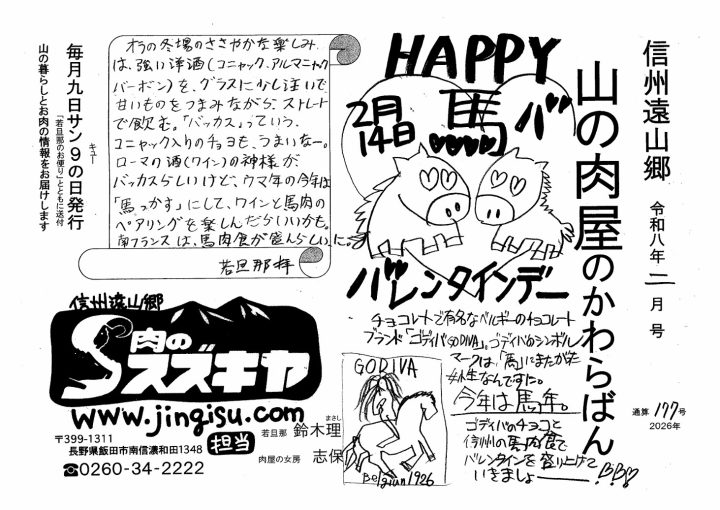 信州遠山郷
山の肉屋のかわらばん
令和八年二月号
通算177号
2026年
HAPPY
2月
14日
馬
バレンタインデー
チョコレートで有名なベルギーのチョコレート
ブランド「ゴディバGODIVA」。ゴディバのシンボル
マークは、「馬」にまたがった
女性なんですに。
今年は馬年。
ゴディバのチョコと
信州の馬肉食で
バレンタインを盛り上げて
いきましょー!
GODIVA
Belgium 1926
オラの冬場のささやかな楽しみ
は、強い洋酒(コニャック、アルマニャック
バーボン)を、グラスに少し注いで
甘いものをつまみながら、ストレート
で飲む。「バッカス」っていう、
コニャック入りのチョコも、うまいなー。
ローマの酒(ワイン)の神様が
バッカスらしいけど、ウマ年の今年は
「馬っかす」にして、ワインと馬肉の
ペアリングを楽しんだらいいかも。
南フランスは、馬肉食が盛んらしいに。
若旦那拝
毎月九日サン9の日発行
キュー
「若旦那のお便り」とともに送付
山の暮らしとお肉の情報をお届けします
信州遠山郷
肉の
スズキヤ
www.jingisu.com
〒399-1311
長野県飯田市南信濃和田1348
☎0260-34-2222
担当
若旦那 鈴木理
まさし
肉屋の女房 志保